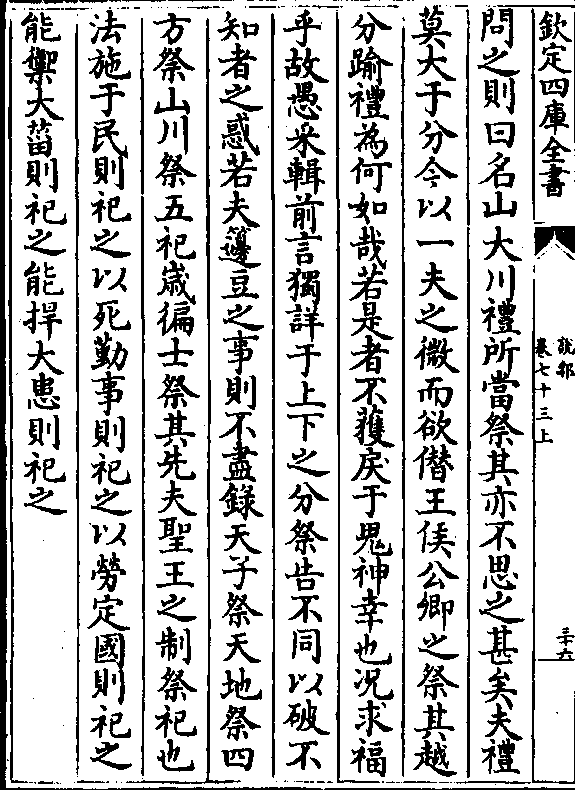 欽定四庫全書
說郛
卷七十三上
三十六
問之則曰名山大川禮所當祭其亦不思之甚矣夫禮
莫大于分今以一夫之微而欲僭王侯公卿之祭其越
分踰禮為何如哉若是者不獲戾于鬼神幸也况求福
乎故愚采輯前言獨詳于上下之分祭告不同以破不
知者之惑若夫籩豆之事則不盡錄天子祭天地祭四
方祭山川祭五祀歲徧士祭其先夫聖王之制祭祀也
法施于民則祀之以死勤事則祀之以勞定國則祀之
能禦大菑則祀之能捍大患則祀之